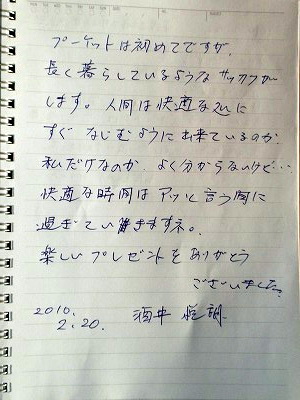 プーケットは初めてですが、
長く暮らしているようなサッカクが
します。人間は快適な処に
すぐなじむように出来ているのか
私だけなのか、よく分からないけど…
快適な時間はアッと言う間に
過ぎていきますネ。
楽しいプレゼントをありがとう
ございました。
2010.
2.20.
酒井